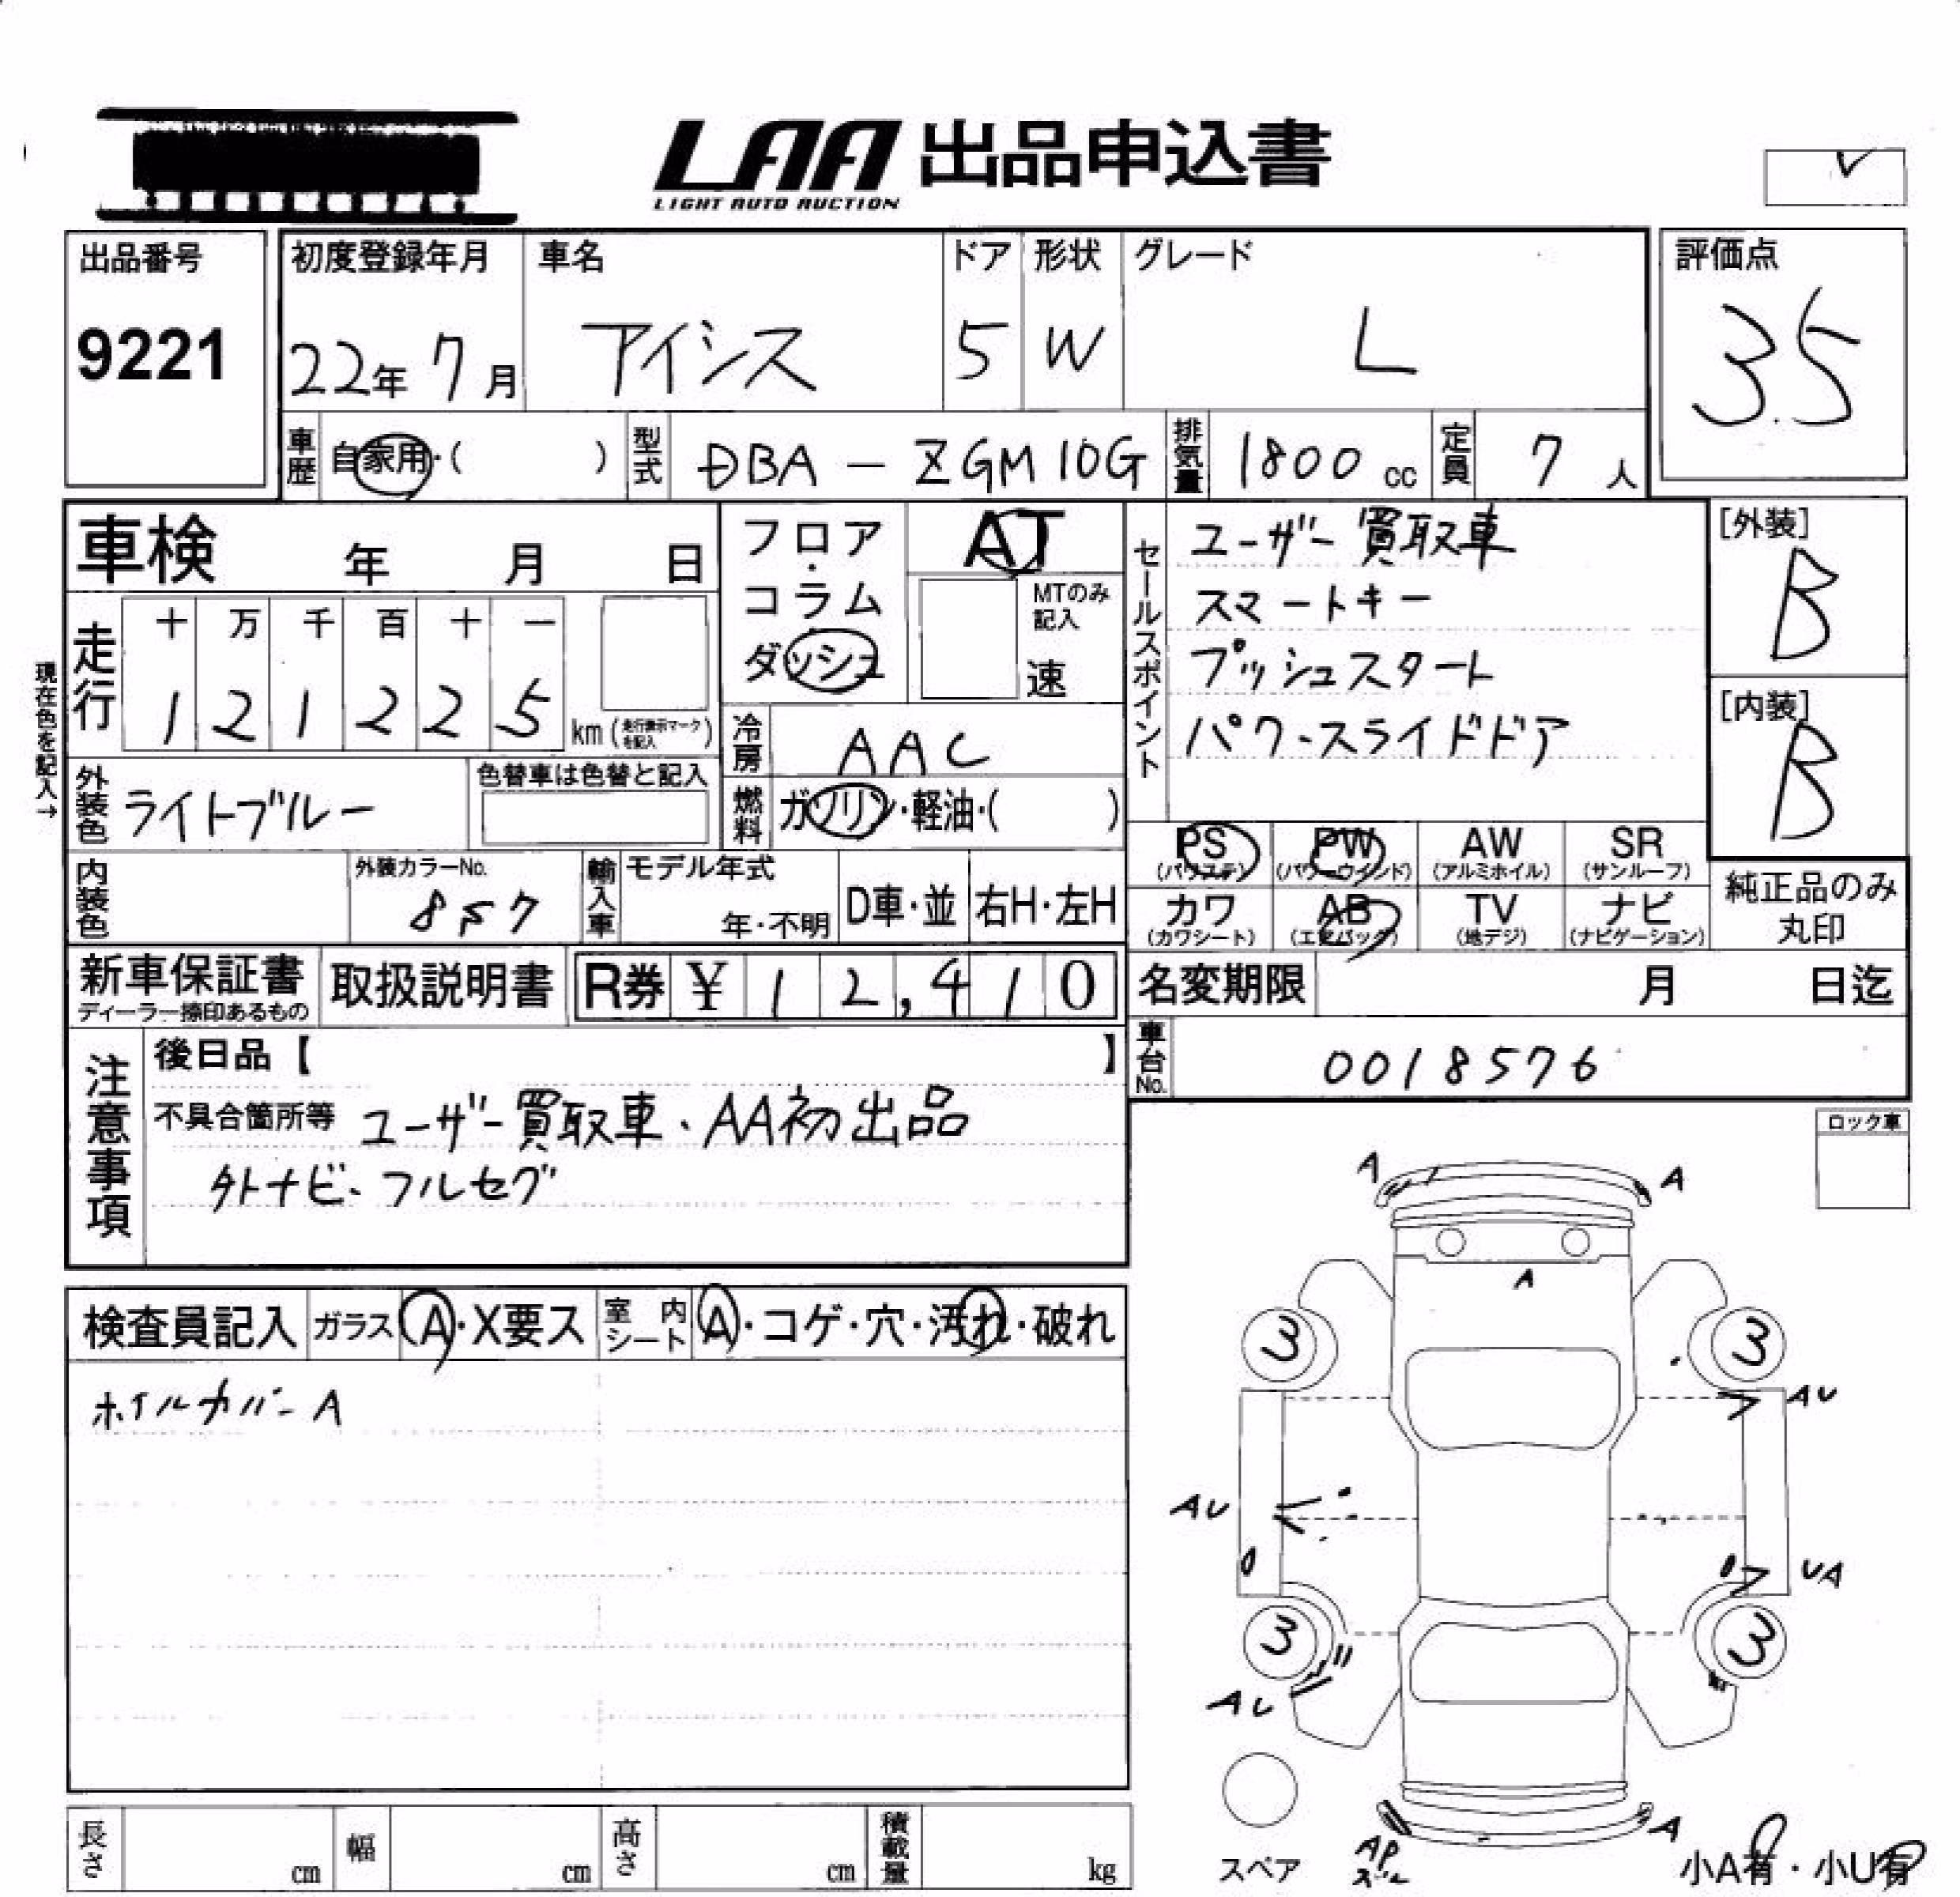 LAA 出品申込書
LIGHT AUTO AUCTION
出品番号
9221
初度登録年月
22年 7月
車名
アイシス
ドア
5
形状
W
グレード
L
評価点
3.5
車歴 自家用・( )
型式 DBA-ZGM10G
排気量 1800 cc
定員 7 人
車検 年 月 日
フロア・コラム
ダッシュ
AT
MTのみ記入
速
セールスポイント
ユーザー買取車
スマートキー
プッシュスタート
パワースライドドア
[外装]
B
[内装]
B
現在色を記入→
走行 十 万 千 百 十 一
1 2 1 2 2 5 km (走行表示マークを記入)
冷房 AAC
燃料 ガソリン・軽油・( )
外装色 ライトブルー
色替車は色替と記入
内装色
外装カラーNo.
857
輸入車 モデル年式
年・不明 D車・並 右H・左H
PS (パワステ) PW (パワーウインド) AW (アルミホイル) SR (サンルーフ)
カワ (カワシート) AB (エアバック) TV (地デジ) ナビ (ナビゲーション)
純正品のみ
丸印
新車保証書
ディーラー捺印あるもの
取扱説明書
R券 ¥ 12,410
名変期限 月 日迄
車台No. 0018576
注意事項
後日品【 】
不具合箇所等 ユーザー買取車、AA初出品
外ナビ、フルセグ
ロック車
検査員記入 ガラス A・X要ス 室内シート A・コゲ・穴・汚れ・破れ
ホイルカバーA
A A
A
3 3
AU
AU
UA
3 3
A
AP
スペア
小A有・小U有
長さ cm 幅 cm 高さ cm 積載量 kg